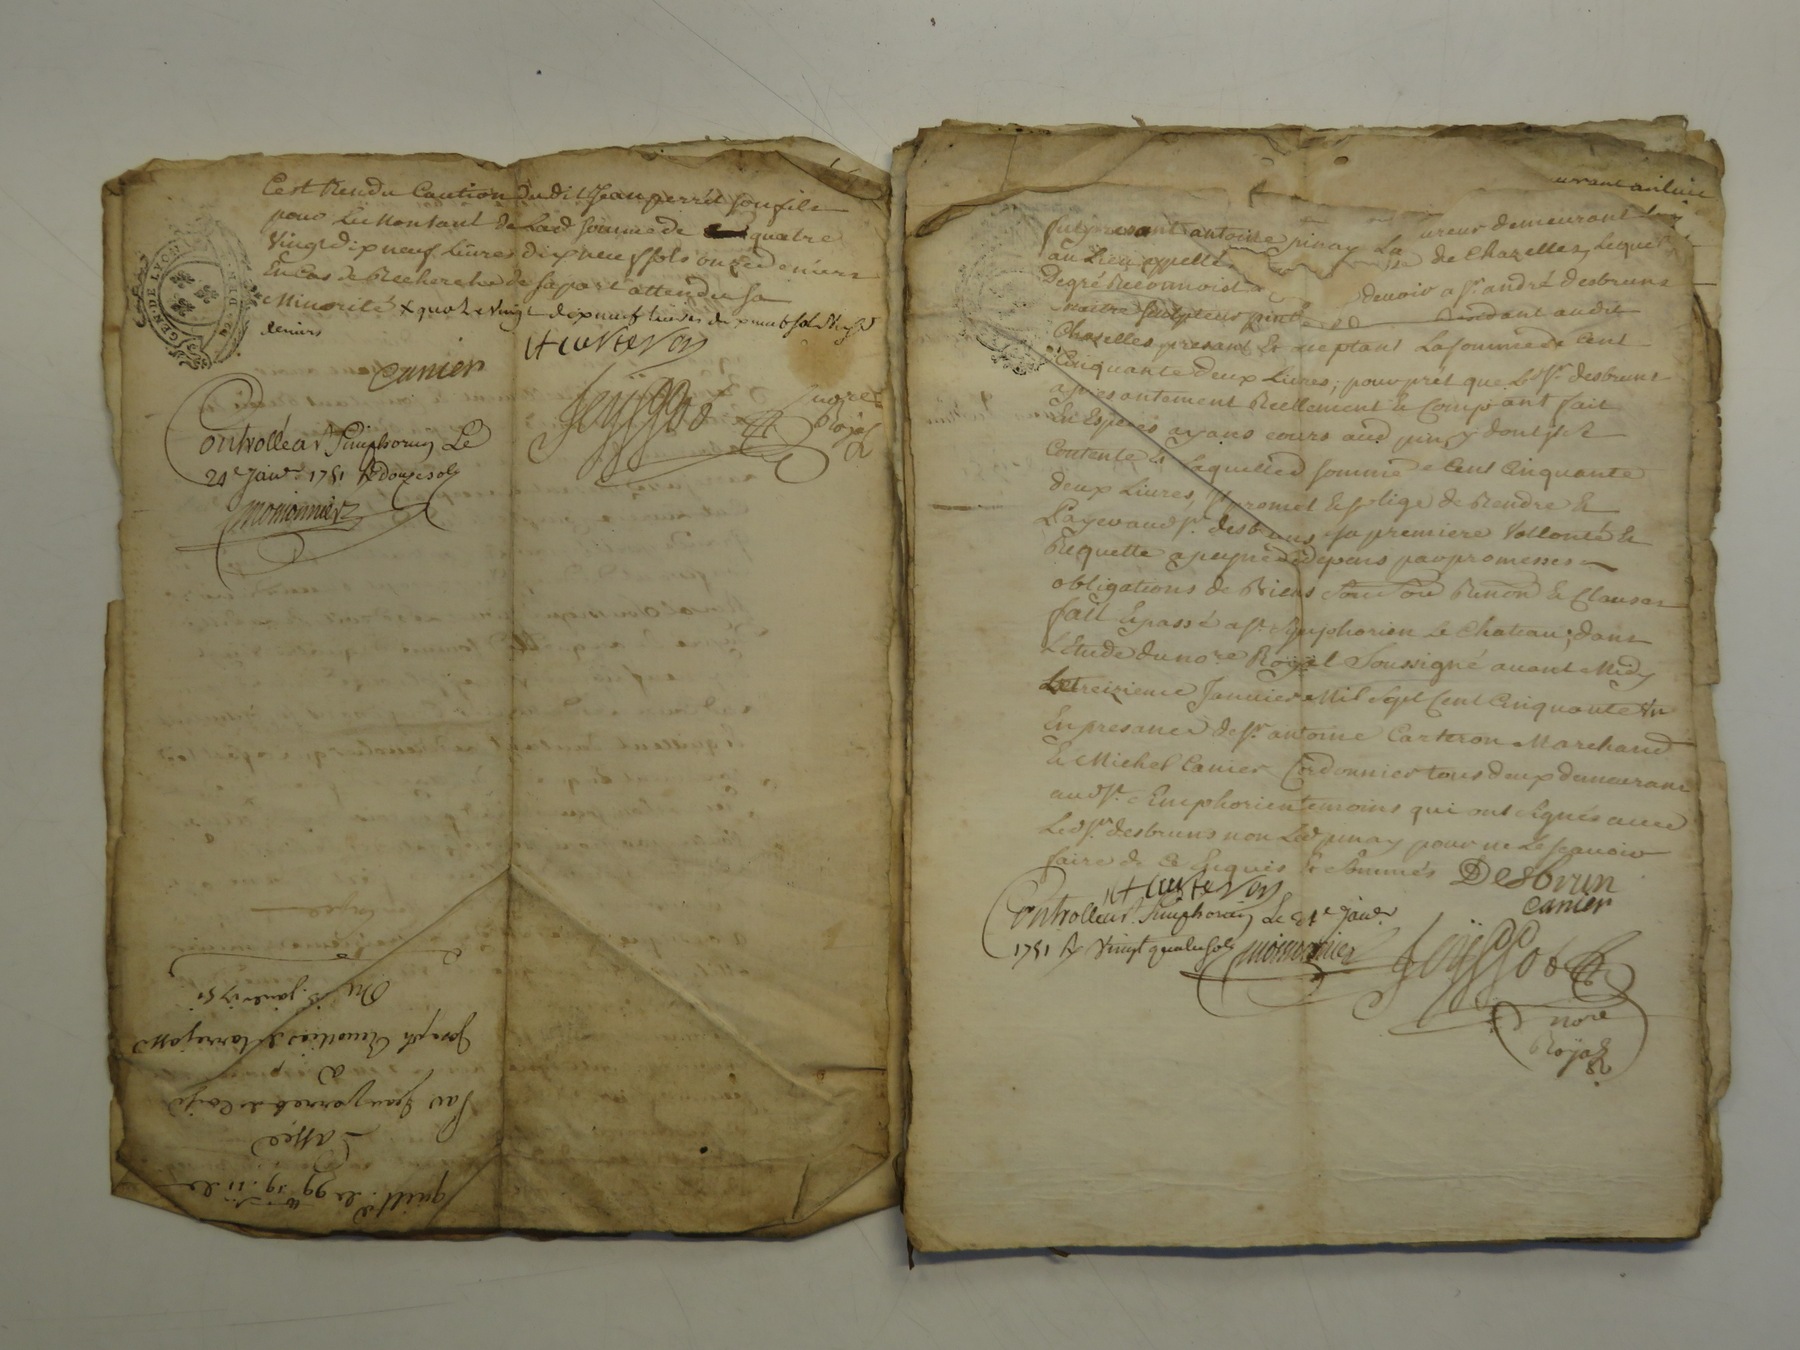 c'est Rendu Caution dudit Jean perret son fils
pour Le Montant de Lad somme de quatre
Vingt dix neuf Livres dix neuf sols onze deniers
En Cas de Recherche de sa part attendu sa
Minorité & quatre Vingt dix neuf livres dix neuf sols
deniers
Canier
Royal
Controllé a st Simphorien Le
21e Janv. 1751 R douze sols
monionnier
Du 13 janvier 1751
Joseph
a
Par Jean perret
quitt. de 99 lt 19 s 11 d
urant au lieu
fut present antoine pinay La ureur demeurant
au Lieu appellé de Chazelles, Lequel
De gré Reconnoist devoir a sr. andré desbruns
maitre sculpteur Residant audit
Chazelles present & aceptant La somme de Cent
Cinquante deux Livres, pour prêt que Led Sr. desbruns
a presantement Reellement & Comptant fait
En Espèces ayans cours aud pinay dont il Est
Contente & Laquelle d somme de Cent Cinquante
deux Livres, il promet & oblige de Rendre &
Payer aud Sr. desbruns a sa premiere Vollonté &
Requette a peyne de depens par promesses
obligations de Biens Renon & Clauses
fait & passé a St. Symphorien Le Chateau, dans
L'Etude du nore Royal Soussigné avant Midy
Le treizieme Janvier Mil Sept Cent Cinquante Un
En presance de Sr. antoine Carteron Marchand
& Michel Canier Cordonnier tous deux demeurans
aud St. Simphorien temoins qui ont signés avec
Led Sr. desbruns non Led pinay pour ne Le sçavoir
faire de Ce Enquis & Sommés
Desbrun
Canier
Controllé a st. Simphorien Le 21e Janv.
1751 R Vingt quatre sols
monionnier
nore
Royal